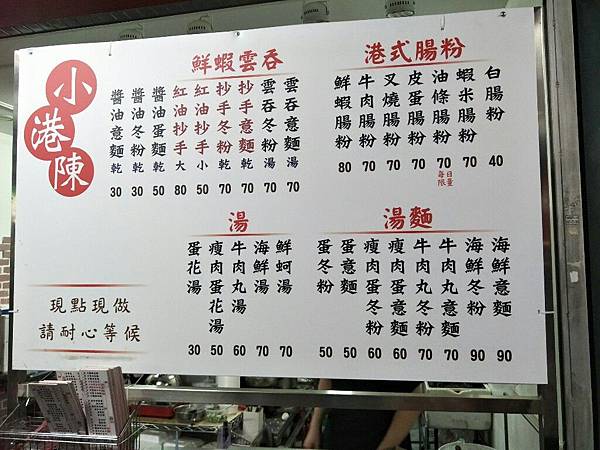 小港陳
鮮蝦雲吞
醬油意麵乾 30
醬油冬粉乾 30
醬油蛋麵乾 50
紅油抄手大 80
紅油抄手小 50
抄手冬粉乾 70
抄手意麵乾 70
雲吞冬粉湯 70
雲吞意麵湯 70
港式腸粉
鮮蝦腸粉 80
牛肉腸粉 70
叉燒腸粉 70
皮蛋腸粉 70
油條腸粉 70
每日限量
蝦米腸粉 70
白腸粉 40
湯
蛋花湯 30
瘦肉蛋花湯 50
牛肉丸湯 60
海鮮湯 70
鮮蚵湯 70
湯麵
蛋冬粉 50
蛋意麵 50
瘦肉蛋冬粉 60
瘦肉蛋意麵 60
牛肉丸冬粉 70
牛肉丸意麵 70
海鮮冬粉 90
海鮮意麵 90
現點現做
請耐心等候